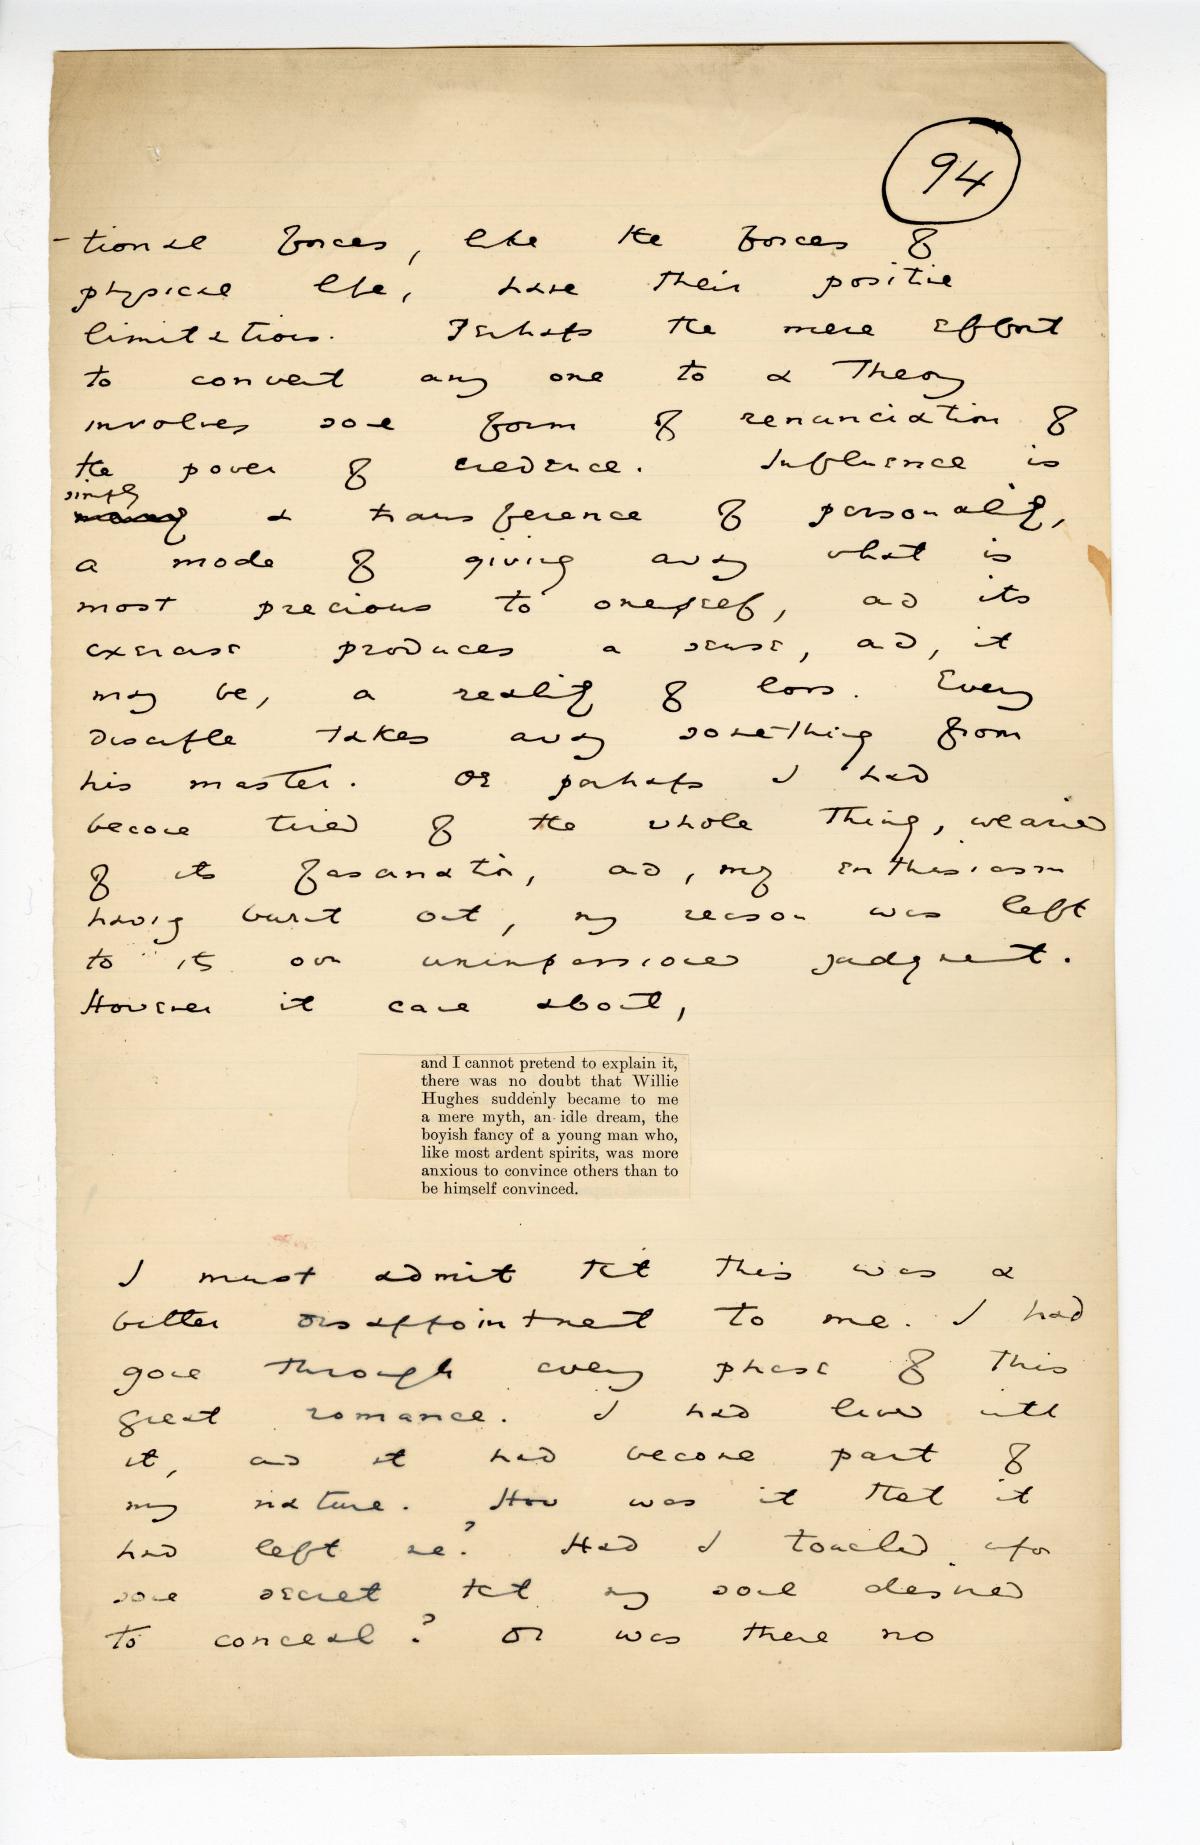 94
-tional forces, like the forces of
physical life, have their positive
limitations. Perhaps the mere effort
to convert any one to a Theory
involves some form of renunciation of
the power of credence. Influence is
simply
a transference of personality,
a mode of giving away what is
most precious to oneself, and its
exercise produces a sense, and, it
may be, a reality of loss. Every
disciple takes away something from
his master. Or perhaps I had
become tired of the whole thing, wearied
of its fascination, and, my enthusiasm
having burnt out, my reason was left
to its own unimpassioned judgment.
However it came about,
and I cannot pretend to explain it,
there was no doubt that Willie
Hughes suddenly became to me
a mere myth, an idle dream, the
boyish fancy of a young man who,
like most ardent spirits, was more
anxious to convince others than to
be himself convinced.
I must admit that this was a
bitter disappointment to me. I had
gone through every phase of this
great romance. I had lived with
it, and it had become part of
my nature. How was it that it
had left me? Had I touched upon
some secret that my soul desired
to conceal? Or was there no